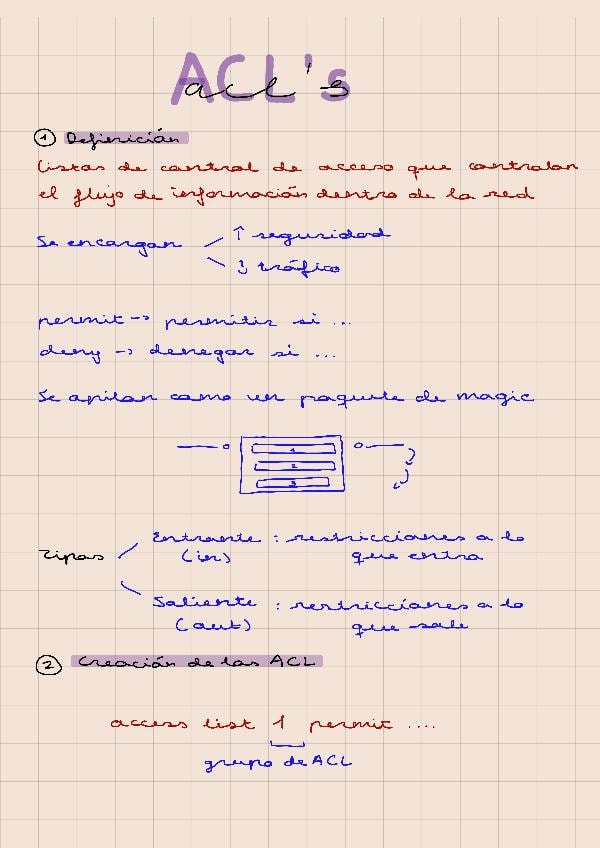 ACL's
acl's
① Definición
Listas de control de acceso que controlan
el flujo de información dentro de la red
Se encargan
↑ seguridad
↓ tráfico
permit -> permitir si ...
deny -> denegar si ...
Se apilan como un paquete de magic
1
2
3
Tipos
Entrante : restricciones a lo
(in) que entra
Saliente : restricciones a lo
(out) que sale
② Creación de las ACL
access list 1 permit ....
grupo de ACL